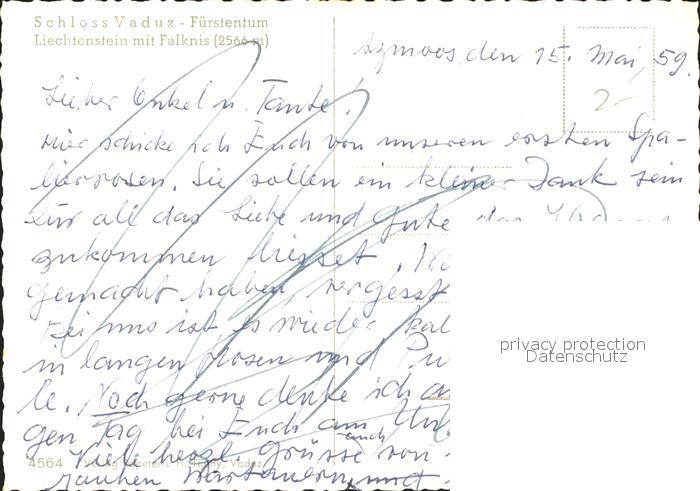 Schloss Vaduz - Fürstentum
Liechtenstein mit Falknis (2566 m)
Azmoos, den 15. Mai, 59.
2.-
Lieber Onkel u. Tante!
Hier schicke ich Euch von unseren ersten Spa-
lierrosen. Sie sollen ein kleiner Dank sein
für all das Liebe und Gute das Ihr uns
zukommen liesset.
gemacht haben, vergesst
Bei uns ist es wieder kal
in langen Hosen und Pu
le. Noch gerne denke ich a
gen Tag bei Euch am Un
Viele herzl. Grüsse auch von
rauhen Wartauern, und
4564
privacy protection
Datenschutz